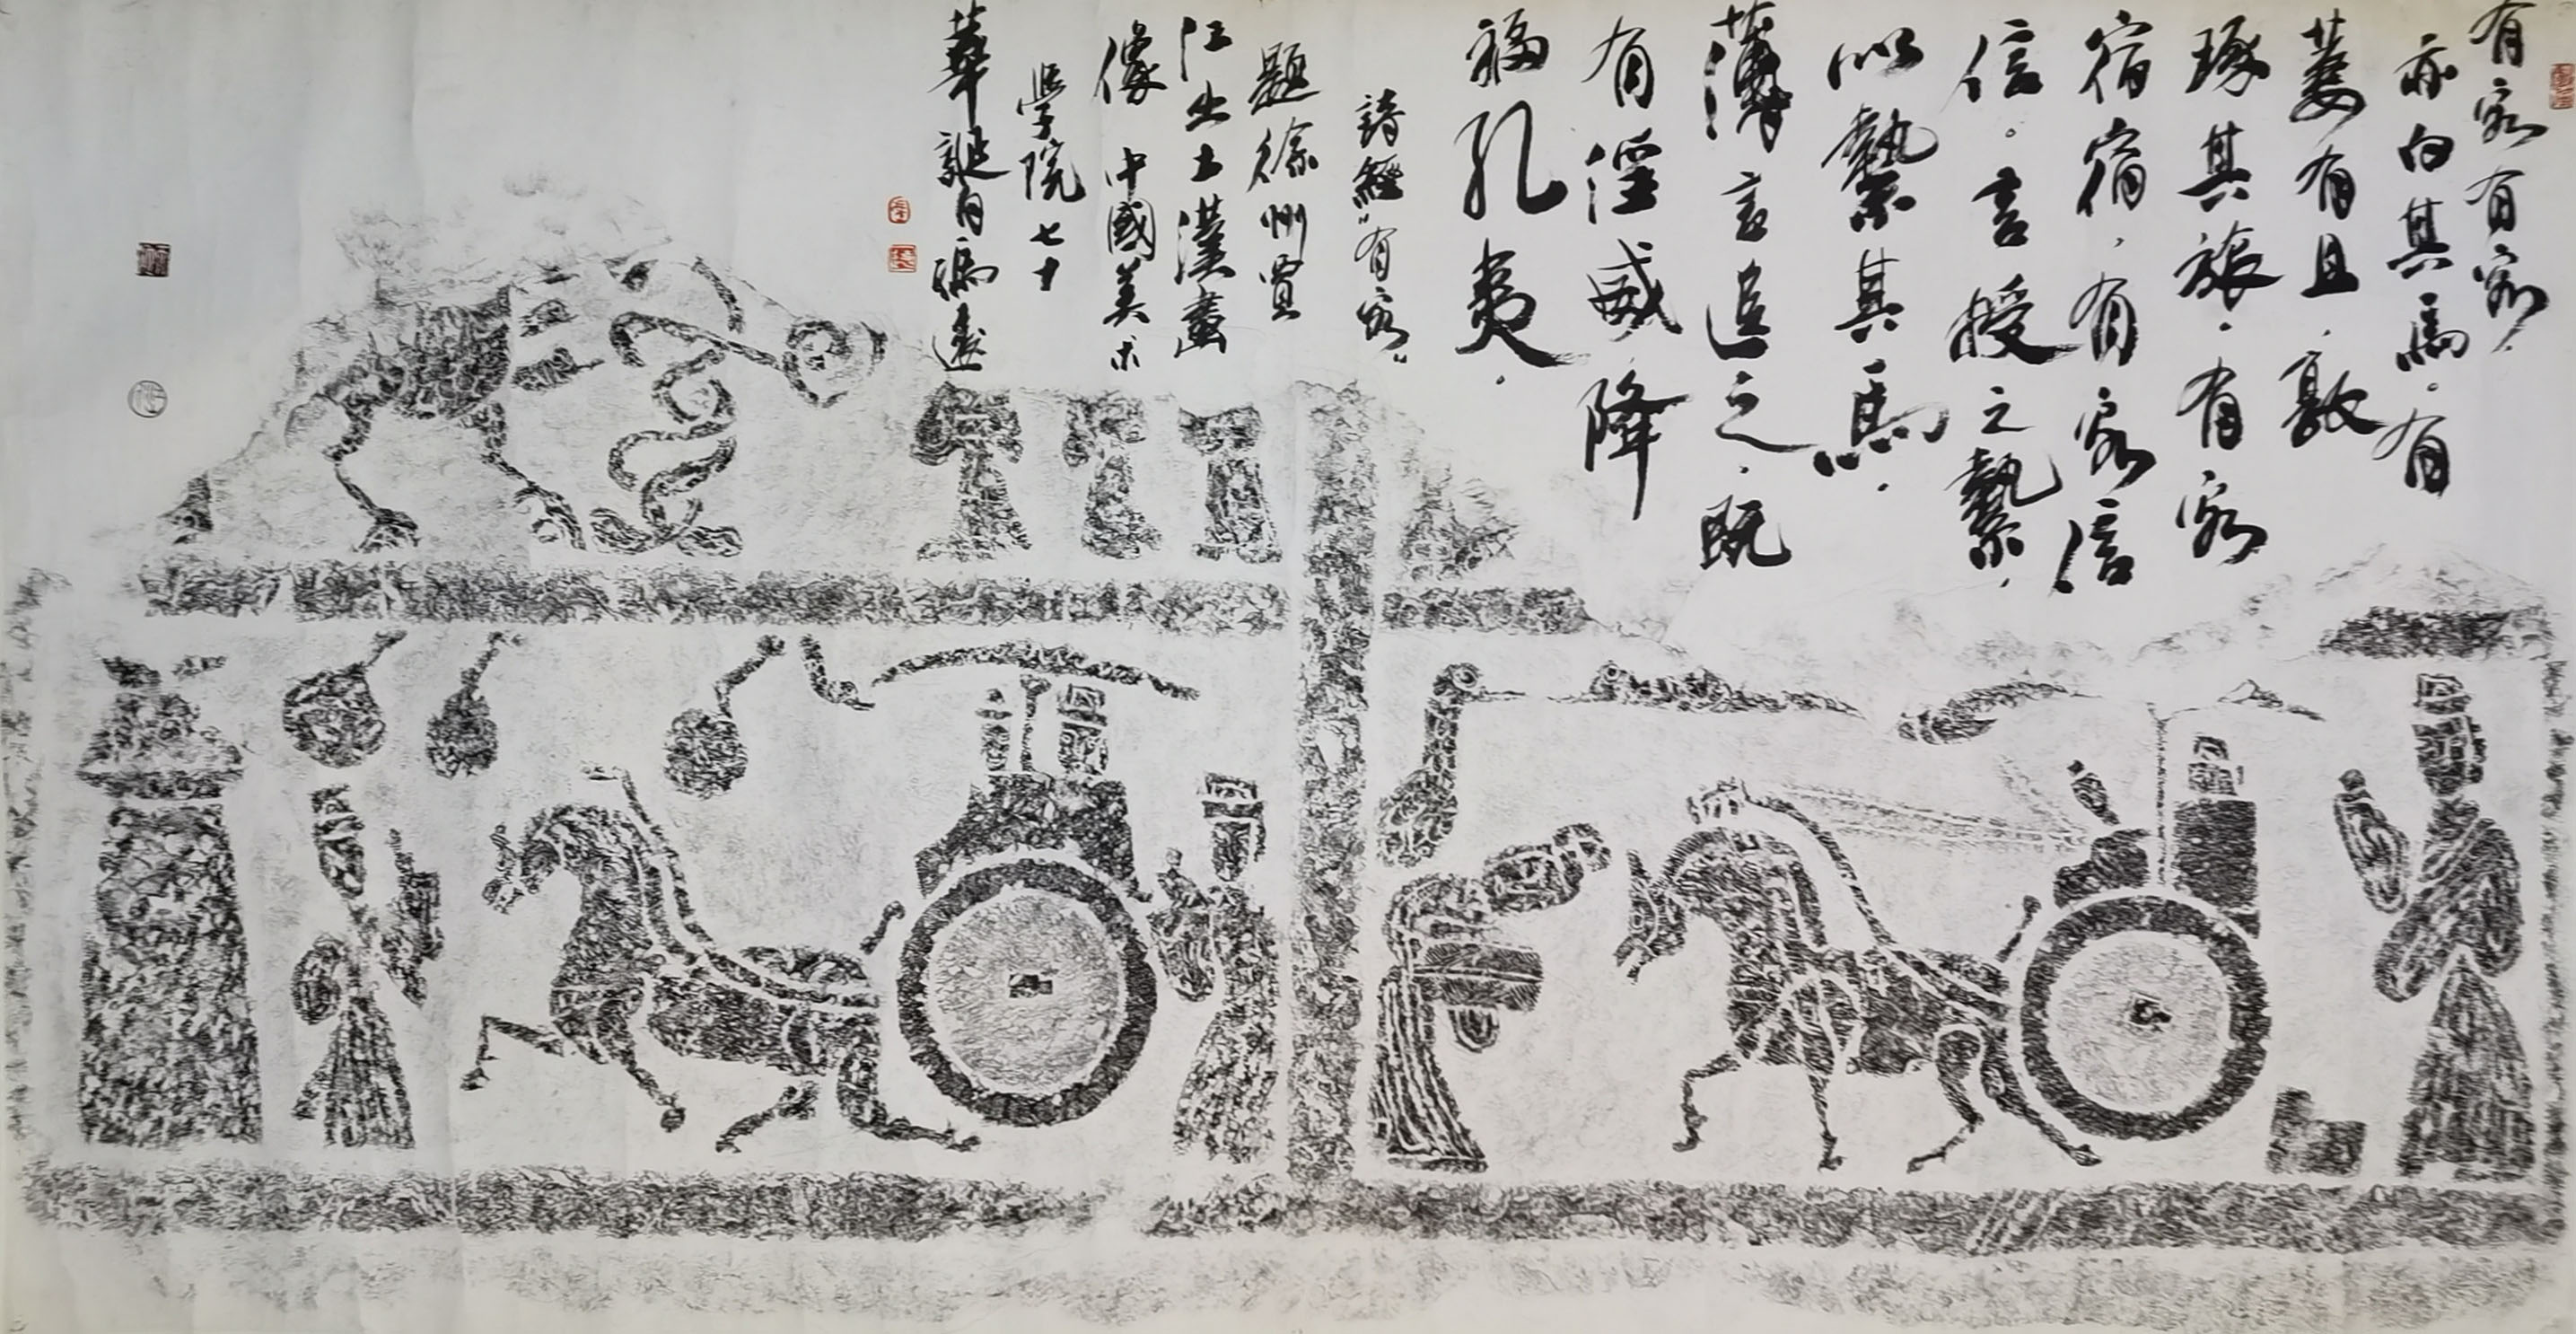 有客有客，
亦白其馬。有
萋有且，敦
琢其旅。有客
宿宿，有客信
信。言授之縶，
以縶其馬。
薄言追之。既
有淫威，降
福孔夷。
詩經"有客"
題徐州賈
汪出土漢畫
像 中國美术
學院七十
華誕日馮遠